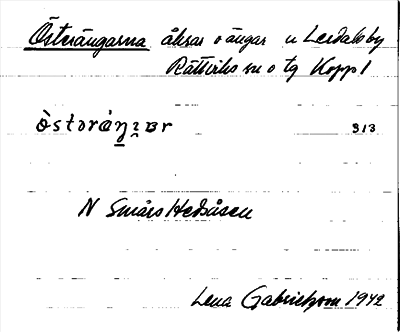 Österängarna åkrar o ängar u Lerdalsby
Rättviks sn o tg Koppl
òstəráŋ̲ɪ̯ɐr 313
N Smårs Hedåsen
Lena Gabrielsson 1942